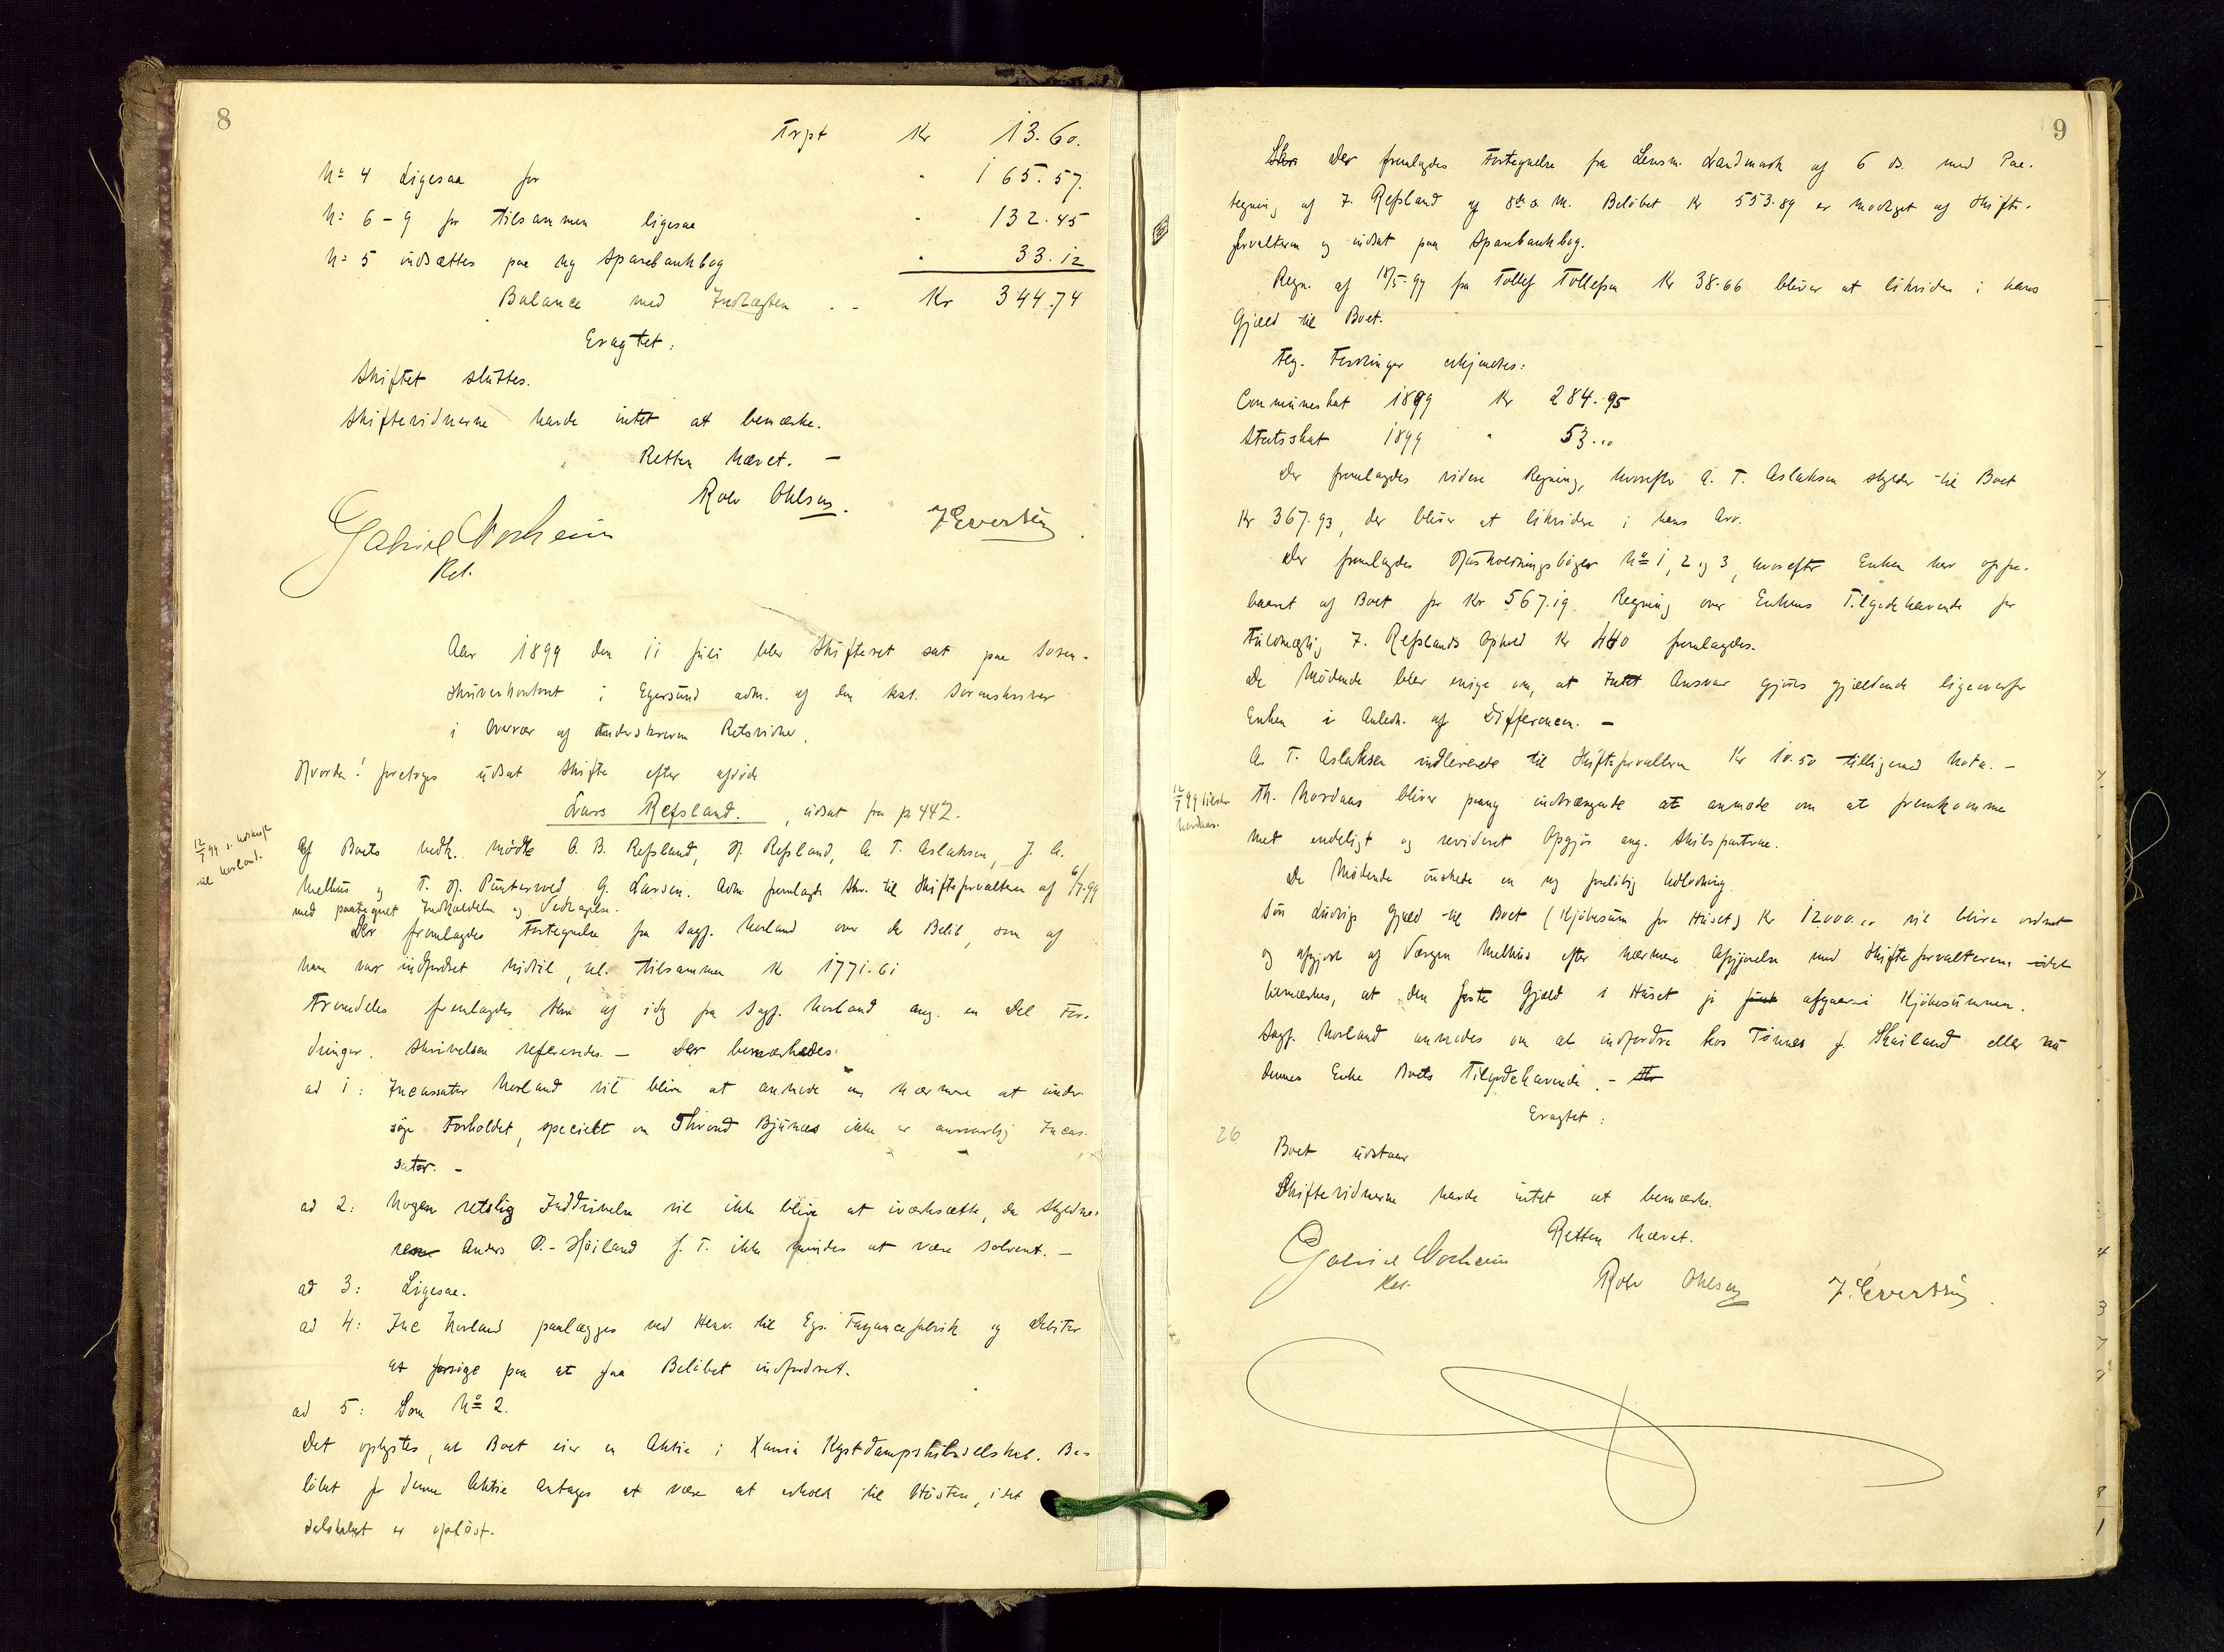 8
Trpt Kr 13.60.
No 4 Ligesaa for " 165.57.
No 6-9 for tilsammen ligesaa " 132.45
No 5 indsættes paa ny Sparebankbog " 33.12
Balance med Indtægten .. Kr 344.74
Eragtet:
Skiftet sluttes.
Skiftevidnerne havde intet at bemærke.
Retten hævet. —
Rolv Ohlsen. J Evertsen.
Gabriel
Kst.
Aar 1899 den 11 Juli blev Skifteret sat paa Soren-
skriverkontoret i Egersund adm. af den kst. Sorenskriver
i Overvær af underskrevne Retsvidner.
Hvorda! foretoges udsat Skifte efter afdøde
Lars Refsland., udsat fra p 442.
12/7 99 s. Udskrift til Norland.
Af Boets vedk. mødte O. B. Refsland, H. Refsland, A. T. Aslaksen, J. A.
Melhus og T. H. Puntervod, G. Larsen. Adm. fremlagde Skr. til Skifteforvalteren af 6/7.99
med paategnet Indkaldelse og Vedtagelse.
Der fremlagdes Fortegnelse fra Sagf. Norland over de Beløb, som af
ham var indfordret hidtil, nl. tilsammen Kr 1771.61
Fremdeles fremlagdes Skr af idg fra Sagf. Norland ang. en Del For-
dringer. Skrivelsen refereredes. — Der bemærkedes:
ad 1: Incassator Norland vil blive at anmode om nærmere at under-
søge Forholdet, specielt om Thrond Bjunes ikke er ansvarlig Incas-
sator. —
ad 2: Nogen retslig Inddrivelse vil ikke blive at iværksætte, da Skyldne-
ren Anders P. Høiland f. T. ikke findes at være solvent. —
ad 3: Ligesaa.
ad 4: Inc Norland paalægges ved Henv. til Egs. Fayancefabrik og Debitor
at forsøge paa at faa Beløbet indfordret.
ad 5: Som No 2.
Det oplystes, at Boet eier en Aktie i Xania Kystdampskibsselskab. Be-
løbet for denne Aktie antages at være at erholde til Høsten, idet
Selskabet er opløst.
9
Der fremlagdes Fortegnelse fra Lensm. Landmark af 6 ds. med Paa-
tegning af J. Refsland af 8de a. M. Beløbet Kr 553.89 er modtget af Skifte-
forvalteren og indsat paa Sparebankbog.
Regn. af 18/5-99 fra Tollef Tollefsen Kr 38.66 bliver at likvidere i hans
Gjæld til Boet.
Flg. Fordringer erkjendtes:
Communeskat 1899 Kr 284.95
Statsskat 1899 " 53.00
Der fremlagdes videre Regning, hvorefter A. T. Aslaksen skylder til Boet
Kr 367.93, der bliver at likvidere i hans Arv.
Der fremlagdes Husholdningsbøger No 1, 2 og 3, hvorefter Enken har oppe-
baaret af Boet for Kr 567.19. Regning over Enkens Tilgodehavende for
J. Refslands Ophold Kr 440 fremlagdes.
De Mødende blev enige om, at Intet Ansvar gjøres gjældende ligeoverfor
Enken i Anledn. af Differencen. —
A. T. Aslaksen indleverede til Skifteforvalteren Kr 10.50 tilligemed Nota. —
12/7 99 tilskr. Nordaas.
Th. Nordaas bliver paany indtrængende at anmode om at fremkomme
med endeligt og revideret Opgjør ang. Skibsparterne.
De Mødende ønskede en ny foreløbig Udlodning.
Søn Ludvigs Gjæld til Boet (Kjøbesum for Huset) Kr 12000.00 vil blive ordnet
og afgjort af Værgen Melhus efter nærmere Afgjørelse med Skifteforvalteren, idet
bemærkes, at den faste Gjæld i Huset jo afgaar i Kjøbesummen.
Sagf. Norland anmodes om at indfordre hos Tønnes J. Skailand eller nu
dennes Enke Boets Tilgodehavende. —
Eragtet:
26
Boet udstaar
Skiftevidnerne havde intet at bemærke.
Retten hævet.
Gabriel
Kst.
Rolv Ohlsen J. Evertsen.